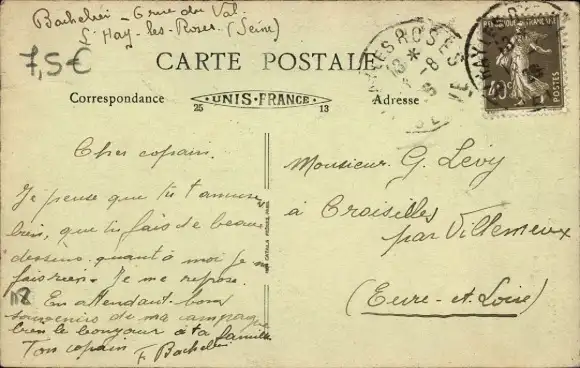 Bachelier - 6 rue du Val.
L'Hay-les-Roses (Seine)
7,5€
CARTE POSTALE
Correspondance
UNIS-FRANCE
25
13
Adresse
L'HAY LES ROSES
SEINE
REPUBLIQUE FRANÇAISE
POSTES
Cher copain.
Je pense que tu t'amuses
bien, que tu fais de beaux
dessins. quant à moi je ne
fais rien. Je me repose.
En attendant bons
souvenirs de ma campagne
bien le bonjour à ta famille
Ton copain F. Bachelier
118
Monsieur G. Levy
à Croisilles
par Villemeux
(Eure-et-Loire)